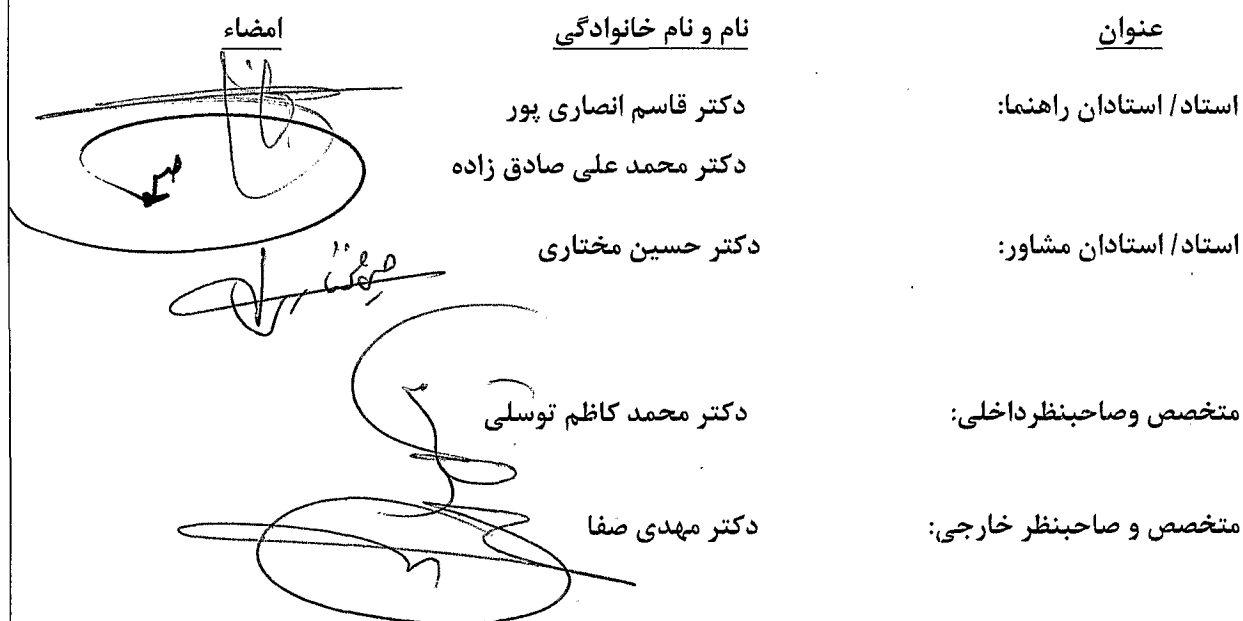 عنوان نام و نام خانوادگی امضاء
استاد/ استادان راهنما: دکتر قاسم انصاری پور
دکتر محمد علی صادق زاده
استاد/ استادان مشاور: دکتر حسین مختاری
متخصص وصاحبنظرداخلی: دکتر محمد کاظم توسلی
متخصص و صاحبنظر خارجی: دکتر مهدی صفا